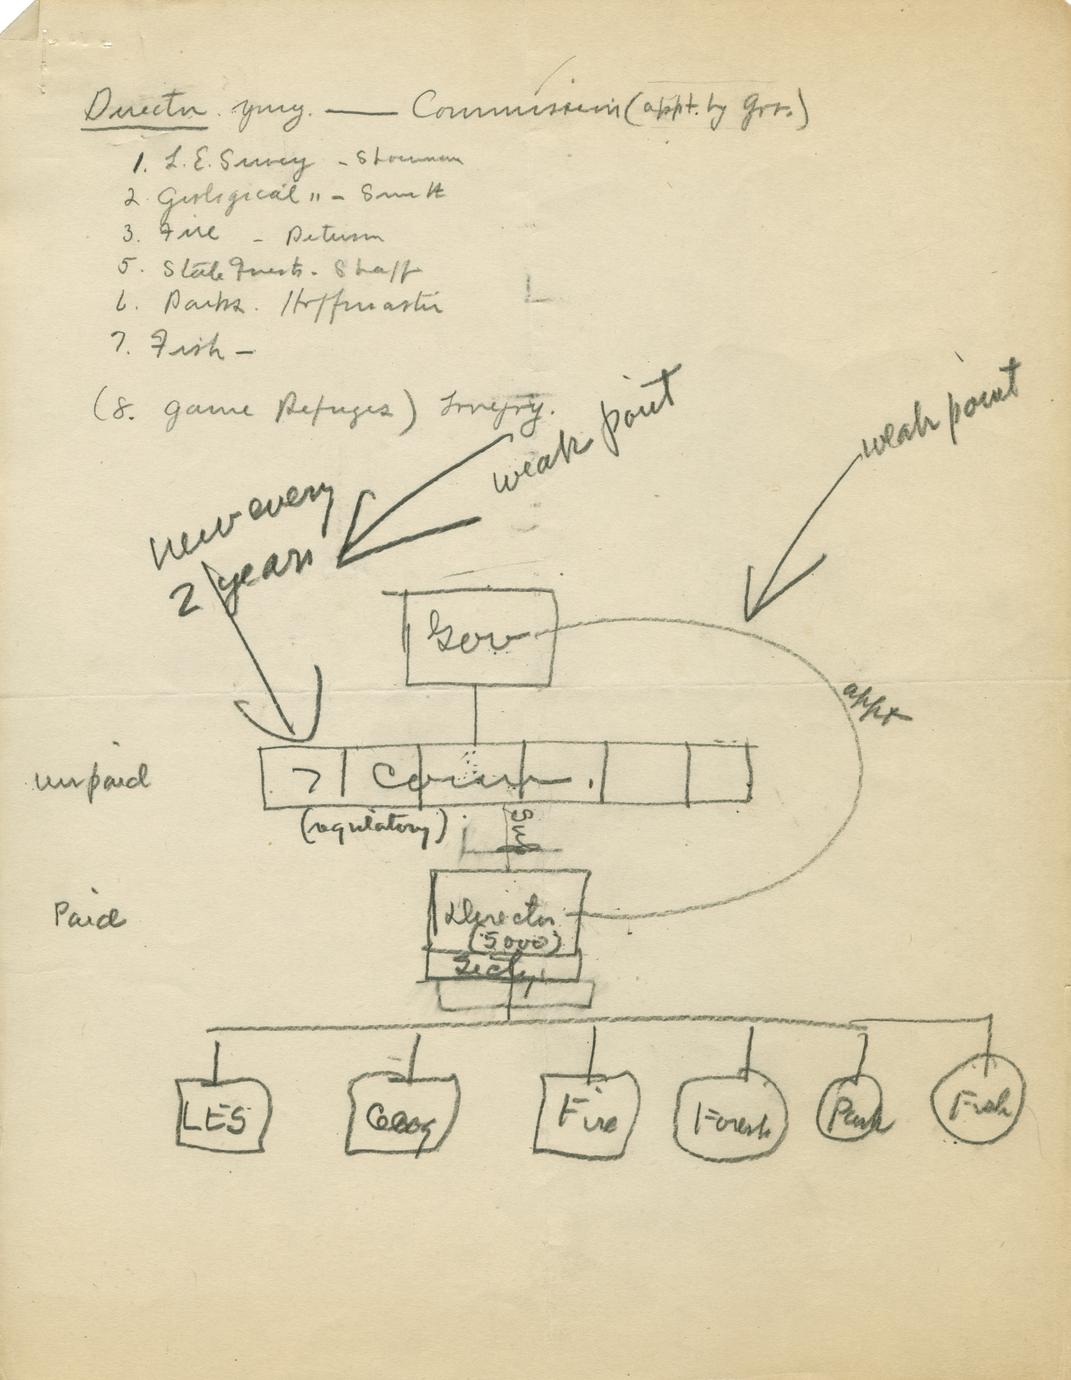 Director. — Commission (appt. by Gov.)
1. L.E. Survey - Showman
2. Geological " - Smith
3. Fire -
5. State Forests - Shaff
6. Parks. Hoffmaster
7. Fish -
(8. Game Refuges) Lovejoy.
weak point
weak point
new every
2 years
Gov
appt
unpaid
7 Comm.
(regulatory)
Paid
Director
(5000)
Secty.
LES
Geog
Fire
Forests
Park
Fish